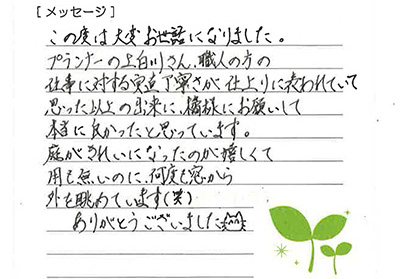 [メッセージ]
この度は大変お世話になりました。
プランナーの上白川さん、職人の方の
仕事に対する実直丁寧さが仕上りに表われていて
思った以上の出来に、橘様にお願いして
本当に良かったと思っています。
庭がきれいになったのが嬉しくて
用も無いのに、何度も窓から
外を眺めています(笑)
ありがとうございました